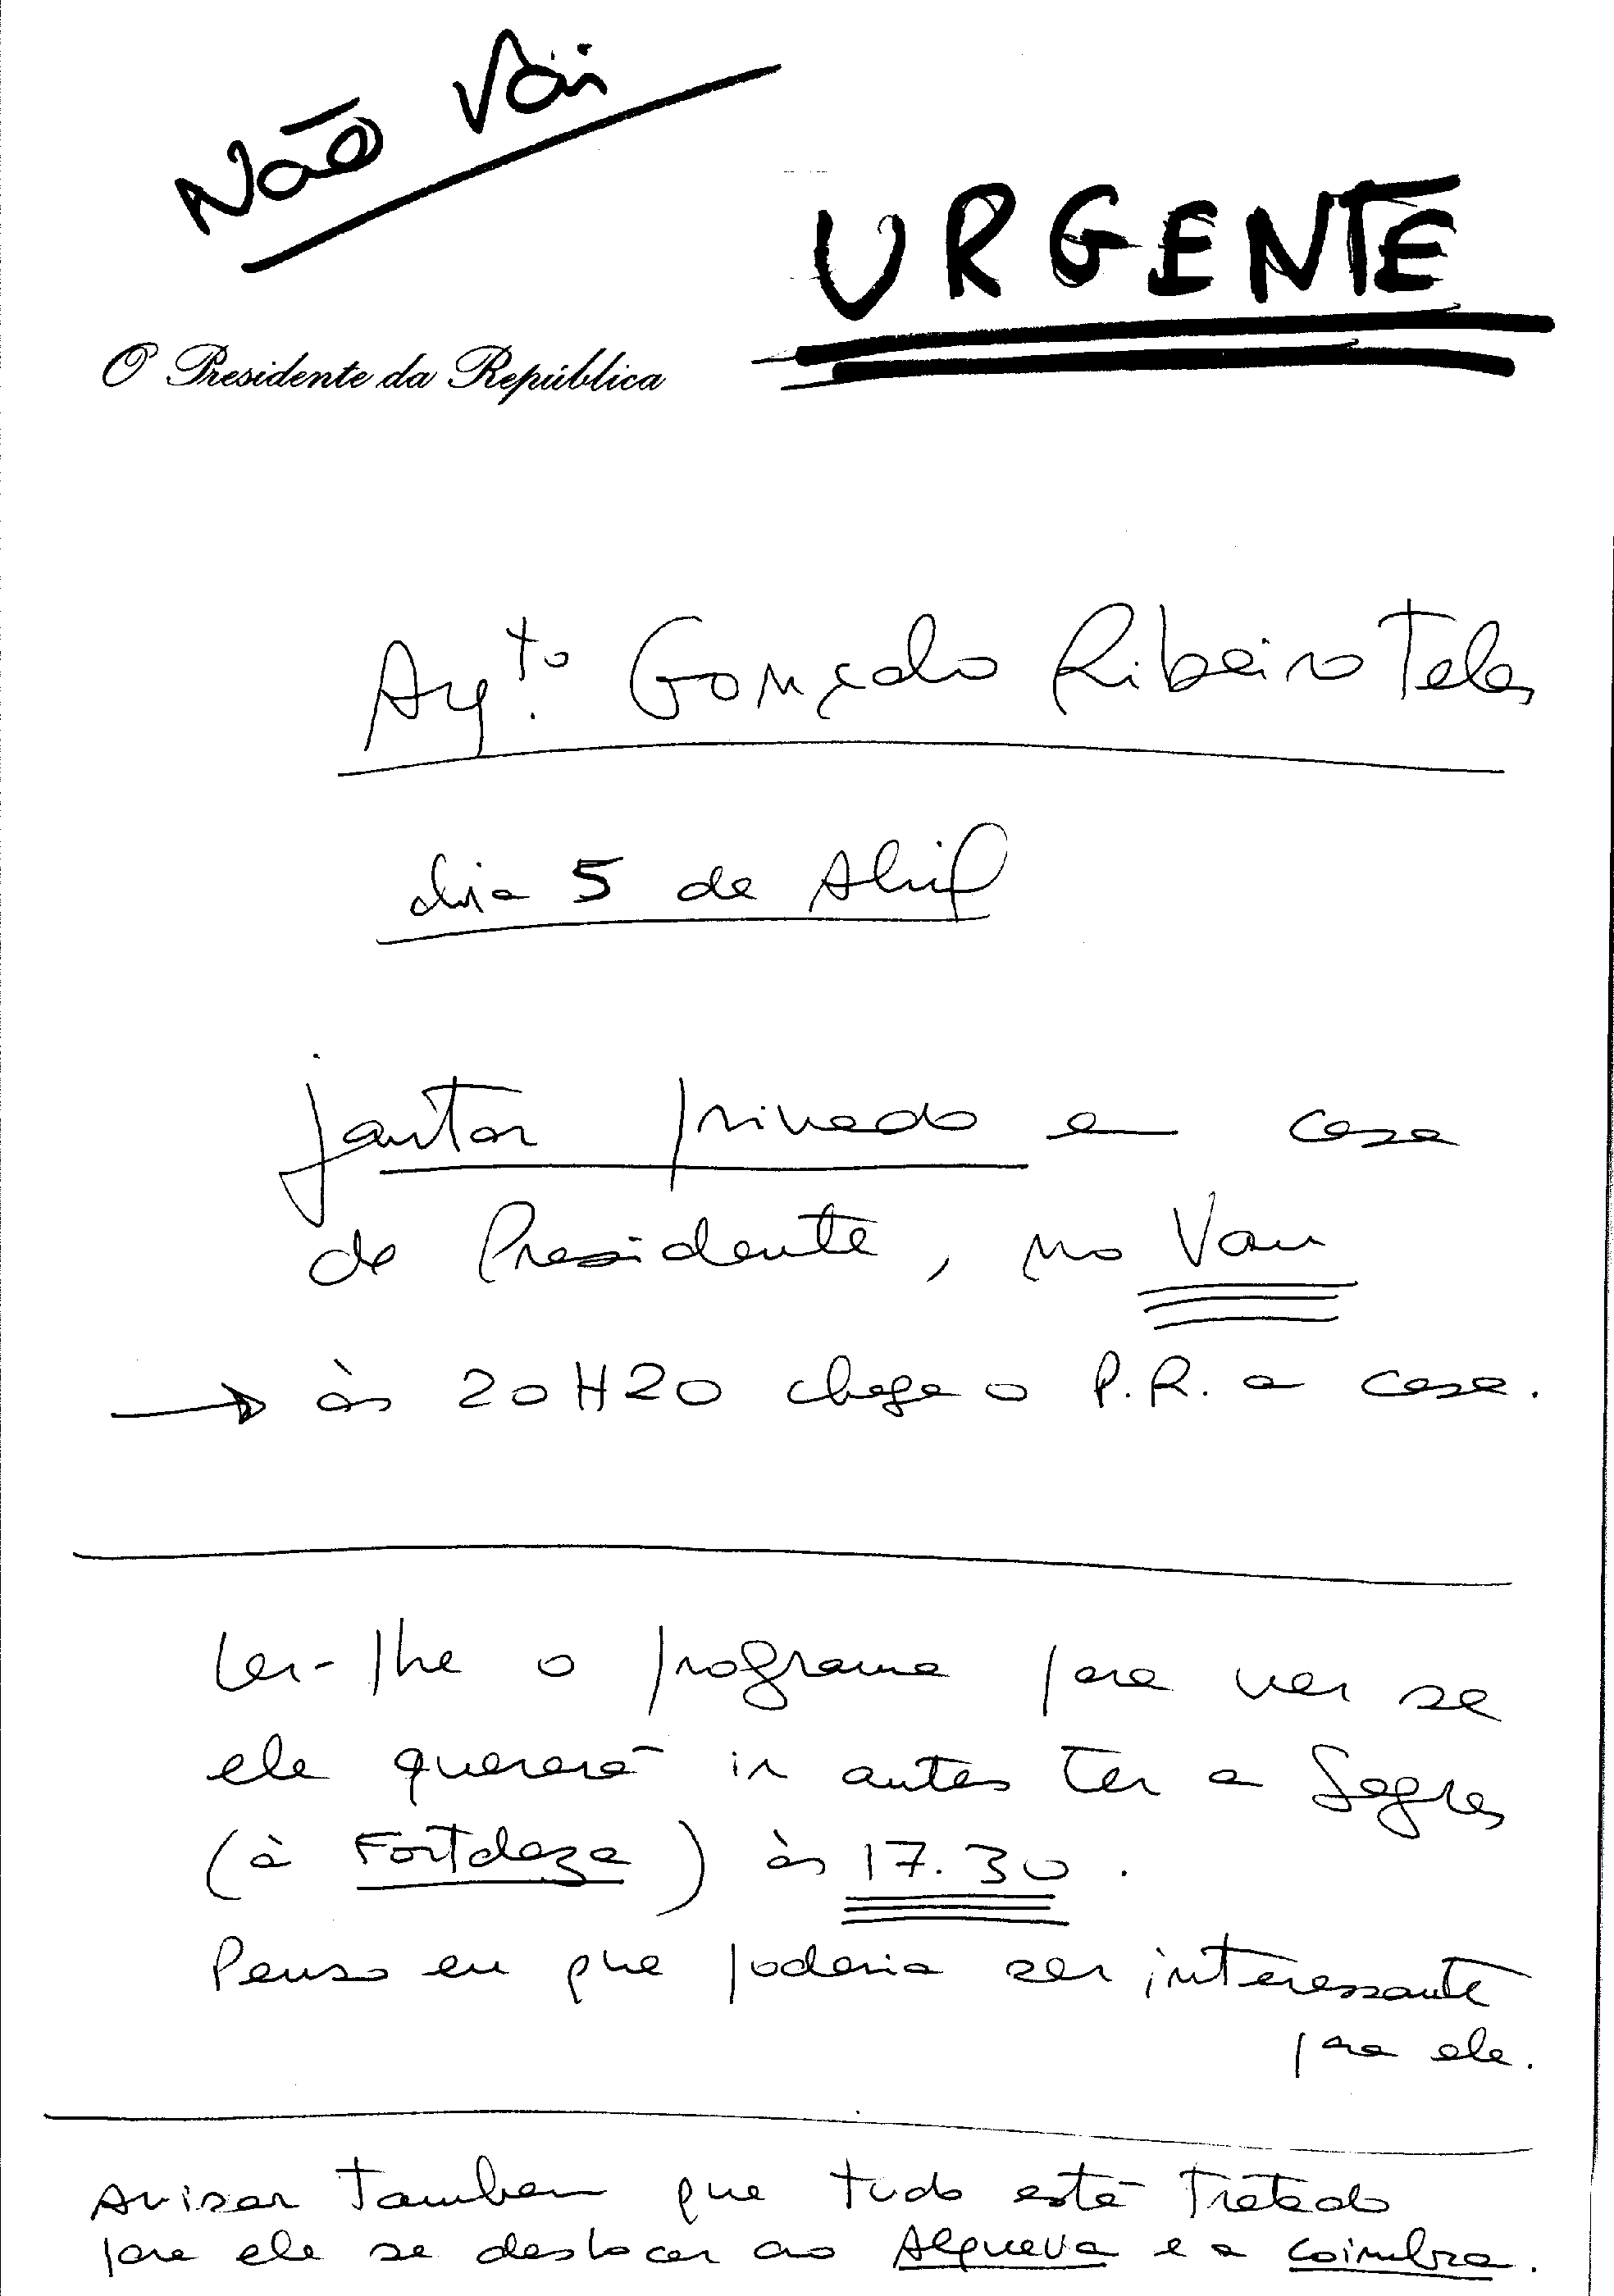 Não Vai
URGENTE
O Presidente da República
Arqto. Gonçalo Ribeiro Teles
dia 5 de Abril
jantar privado em casa
do Presidente, no Vau
→ às 20H20 chega o P.R. a casa.
Ler-lhe o programa para ver se
ele quererá ir antes ter a Sagres
(à Fortaleza) às 17.30.
Penso eu que poderia ser interessante
para ele.
Avisar tambem que tudo está tratado
para ele se deslocar ao Alqueva e a Coimbra.